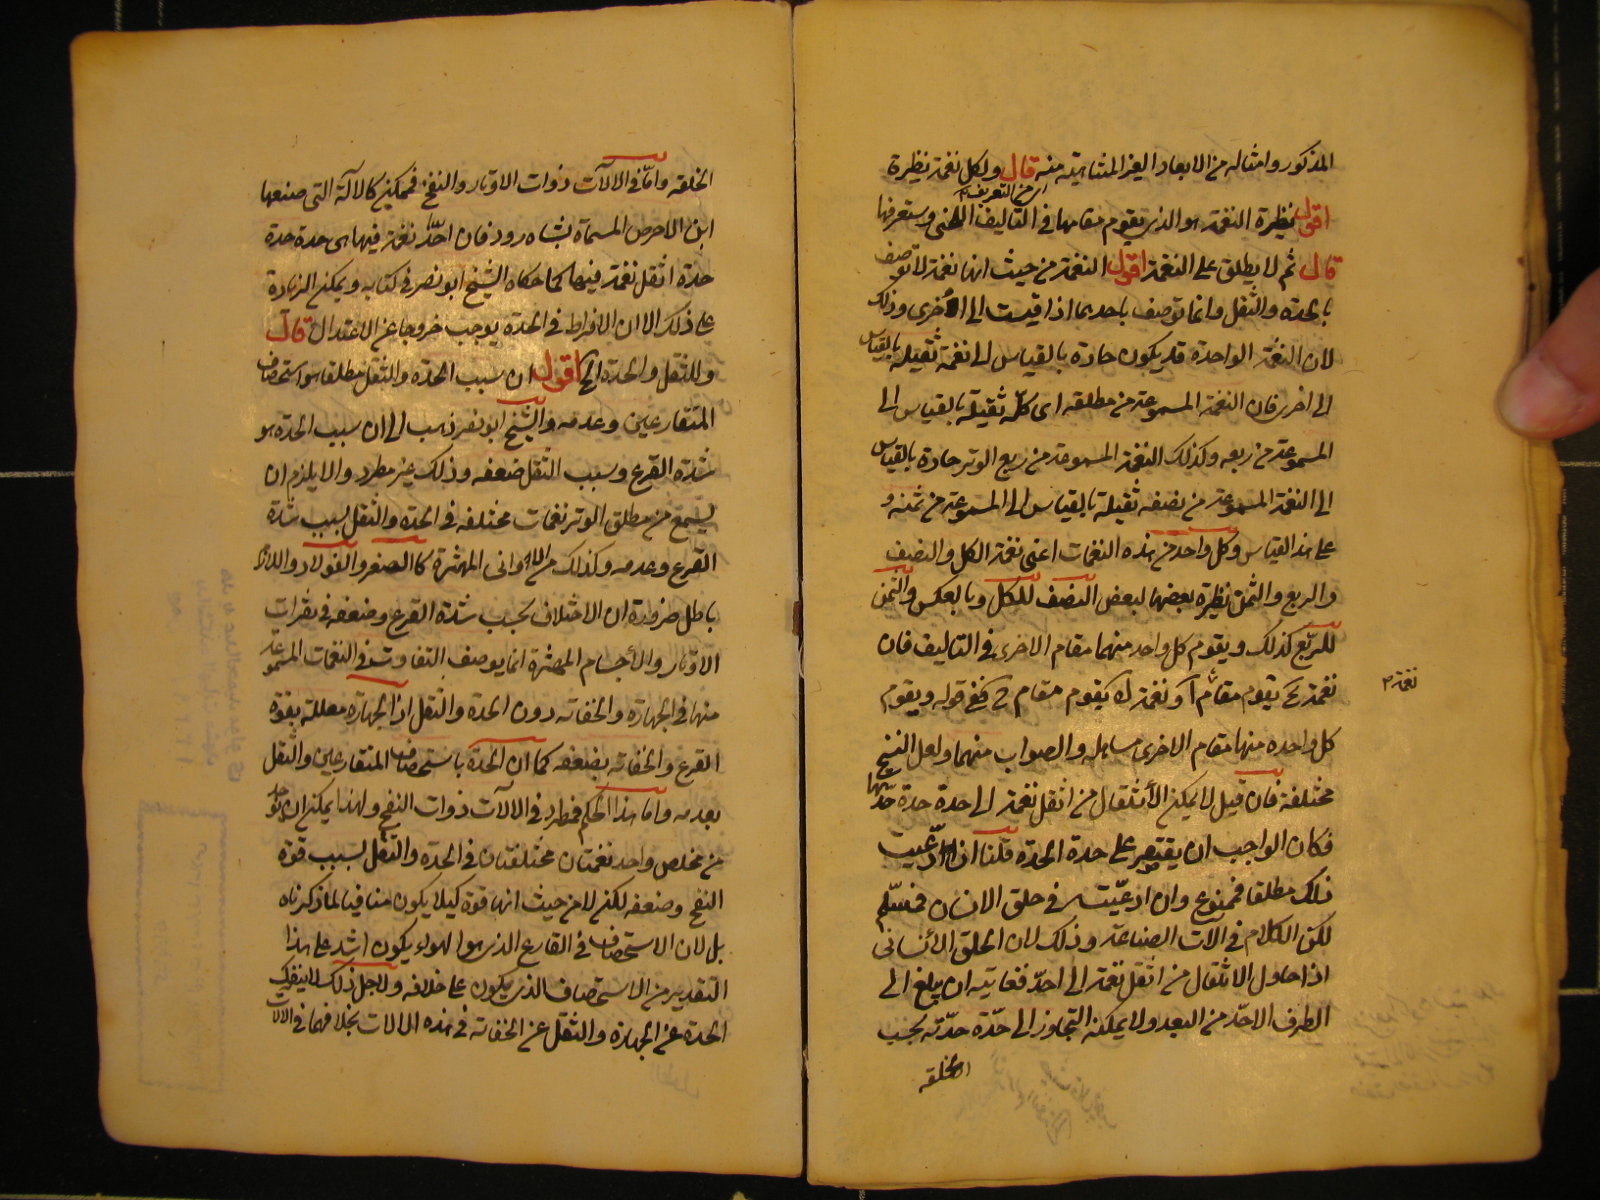 المذكور وامثاله من الابعاد الغير المتناهية منه قال ولكل نغمة نظيرة
اقول نظيرة النغمة هو الذى يقوم مقامها فى التأليف اللحنى وستعرفها
قال ثم لا يطلق على النغمة اقول النغمة من حيث انها نغمة لا توصف
بالحدة والثقل وانما توصف باحديهما اذا قيست الى الاخرى وذلك
لان النغمة الواحدة قد يكون حادة بالقياس الى نغمة ثقيلة بالقياس
الى اخرى فان النغمة المسموعة من مطلقه اى كله ثقيلة بالقياس الى
المسموعة من ربعه وكذلك النغمة المسموعة من ربع الوتر حادة بالقياس
الى النغمة المسموعة من نصفه ثقيلة بالقياس الى المسموعة من ثمنه و
على هذا القياس وكل واحد من هذه النغمات اعنى نغمة الكل والنصف
والربع والثمن نظيرة بعضها لبعض النصف للكل وبالعكس والثمن
للربع كذلك ويقوم كل واحد منهما مقام الاخرى فى التأليف فان
نغمة يح يقوم مقام ا ونغمة له يقوم مقام ففى قوله ويقوم
نغمة
كل واحده منها مقام الاخرى مساهلة والصواب منهما ولعل النسخ
مختلفة فان قيل لا يمكن الانتقال من اثقل نغمة الى حدة حدة حدتها
فكان الواجب ان يقتصر على حدة الحدة قلنا ان ادعيت
ذلك مطلقا فممنوع وان ادعيت فى حلق الانسان فمسلم
لكن الكلام فى آلات الصناعة وذلك لان الحلق الانسانى
اذا حاول الانتقال من اثقل نغمة الى احد فغايته ان يبلغ الى
الطرف الاحد من البعد ولا يمكنه التجاوز الى حدة حدته بحسب
الخلقة
الخلقة واما فى الالآت ذوات الاوتار والنفخ فممكن كالالة التى صنعها
ابن الاحوص المسماة بشاه رود فان احد نغمة فيها هى حدة حدة
حدة اثقل نغمة فيها كما حكاه الشيخ ابو نصر فى كتابه ويمكن الزيادة
على ذلك الا ان الافراط فى الحدة يوجب خروجا عن الاعتدال قال
وللثقل والحدة الخ اقول ان سبب الحدة والثقل مطلقا هو استحصاف
المتقارعين وعدمه والشيخ ابو نصر ذهب الى ان سبب الحدة هو
شدة القرع وسبب الثقل ضعفه وذلك غير مطرد والا يلزم ان
يسمع من مطلق الوتر نغمات مختلفة فى الحدة والثقل بسبب شدة
القرع وعدمه وكذلك من الاوانى المهتزة كالصفر والفولاد واللازم
باطل ضرورة ان الاختلاف بحسب شدة القرع وضعفه فى نقرات
الاوتار والاجسام المهتزة انما يوصف التفاوت فى النغمات المسموعة
منها فى الجهارة والخفاتة دون الحدة والثقل اذ الجهارة معللة بقوة
القرع والخفاتة بضعفه كما ان الحدة باستحصاف المتقارعين والثقل
بعدمه واما هذا الحكم فمطرد فى الالات ذوات النفخ ولهذا يمكن ان يوجد
من مخلص واحد نغمتان مختلفتان فى الحدة والثقل بسبب قوة
النفخ وضعفه لكن لا من حيث انها قوة كيلا يكون منافيا لما ذكرناه
بل لان الاستحصاف فى القارع الذى هو الهواء يكون اشد على هذا
التقدير من الاستحصاف الذى يكون على خلافه ولاجل ذلك لا ينفك
الحدة عن الجهارة والثقل عن الخفاتة فى هذه الالات بخلافهما فى الالات